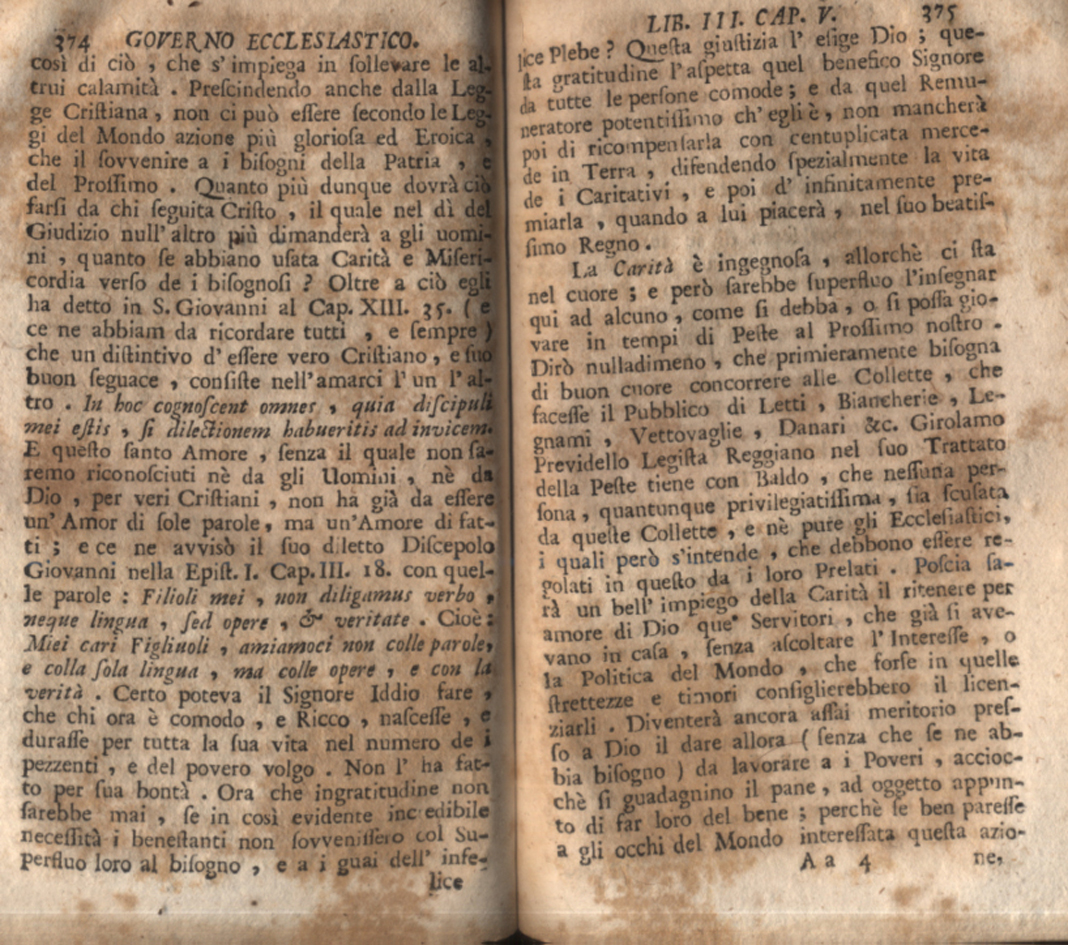 374 GOVERNO ECCLESIASTICO.
così di ciò , che s'impiega in ſollevare le al-
trui calamità . Preſcindendo anche dalla Leg-
ge Criſtiana , non ci può eſſere ſecondo le Leg-
gi del Mondo azione più glorioſa ed Eroica ,
che il ſovvenire a i biſogni della Patria , e
del Proſſimo . Quanto più dunque dovrà ciò
farſi da chi ſeguita Criſto , il quale nel dì del
Giudizio null'altro più dimanderà a gli uomi-
ni , quanto ſe abbiano uſata Carità e Miſeri-
cordia verſo de i biſognoſi ? Oltre a ciò egli
ha detto in S. Giovanni al Cap. XIII. 35. ( e
ce ne abbiam da ricordare tutti , e ſempre )
che un diſtintivo d' eſſere vero Criſtiano , e ſuo
buon ſeguace , conſiſte nell'amarci l'un l'al-
tro . In hoc cognoſcent omnes , quia diſcipuli
mei eſtis , ſi dilectionem habueritis ad invicem.
E queſto ſanto Amore , ſenza il quale non ſa-
remo riconoſciuti nè da gli Uomini , nè da
Dio , per veri Criſtiani , non ha già da eſſere
un' Amor di ſole parole, ma un'Amore di fat-
ti ; e ce ne avvisò il ſuo diletto Diſcepolo
Giovanni nella Epiſt. I. Cap. III. 18. con quel-
le parole : Filioli mei , non diligamus verbo ,
neque lingua , ſed opere , & veritate . Cioè :
Miei cari Figliuoli , amiamoci non colle parole,
e colla ſola lingua , ma colle opere , e con la
verità . Certo poteva il Signore Iddio fare ,
che chi ora è comodo , e Ricco , naſceſſe , e
duraſſe per tutta la ſua vita nel numero de i
pezzenti , e del povero volgo . Non l' ha fat-
to per ſua bontà . Ora che ingratitudine non
ſarebbe mai , ſe in così evidente incredibile
neceſſità i beneſtanti non ſovveniſſero col Su-
perfluo loro al biſogno , e a i guai dell' infe-
lice
LIB. III. CAP. V. 375
lice Plebe ? Queſta giuſtizia l' eſige Dio ; que-
ſta gratitudine l'aſpetta quel benefico Signore
da tutte le perſone comode ; e da quel Remu-
neratore potentiſſimo ch' egli è , non mancherà
poi di ricompenſarla con centuplicata merce-
de in Terra , difendendo ſpezialmente la vita
de i Caritativi , e poi d' infinitamente pre-
miarla , quando a lui piacerà , nel ſuo beatiſ-
ſimo Regno .
La Carità è ingegnoſa , allorchè ci ſta
nel cuore ; e però ſarebbe ſuperfluo l'inſegnar
qui ad alcuno , come ſi debba , o ſi poſſa gio-
vare in tempi di Peſte al Proſſimo noſtro .
Dirò nulladimeno , che primieramente biſogna
di buon cuore concorrere alle Collette , che
faceſſe il Pubblico di Letti , Biancherie , Le-
gnami , Vettovaglie , Danari &c. Girolamo
Previdello Legiſta Reggiano nel ſuo Trattato
della Peſte tiene con Baldo , che neſſuna per-
ſona , quantunque privilegiatiſſima , ſia ſcuſata
da queſte Collette , e nè pure gli Eccleſiaſtici,
i quali però s'intende , che debbono eſſere re-
golati in queſto da i loro Prelati . Poſcia ſa-
rà un bell' impiego della Carità il ritenere per
amore di Dio que' Servitori , che già ſi ave-
vano in caſa , ſenza aſcoltare l'Intereſſe , o
la Politica del Mondo , che forſe in quelle
ſtrettezze e timori conſiglierebbero il licen-
ziarli . Diventerà ancora aſſai meritorio preſ-
ſo a Dio il dare allora ( ſenza che ſe ne ab-
bia biſogno ) da lavorare a i Poveri , accioc-
chè ſi guadagnino il pane , ad oggetto appun-
to di far loro del bene ; perchè ſe ben pareſſe
a gli occhi del Mondo intereſſata queſta azio-
A a 4 ne,